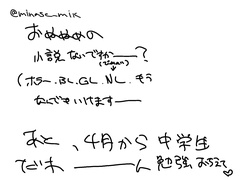 @minase_mik
おぬぬぬの
小説 ないですかー―?
(ホラー、BL、GL、NL、もう
なんでもいけますー―
あと、4月から中学生
だわー―――ん 勉強おちえて♡